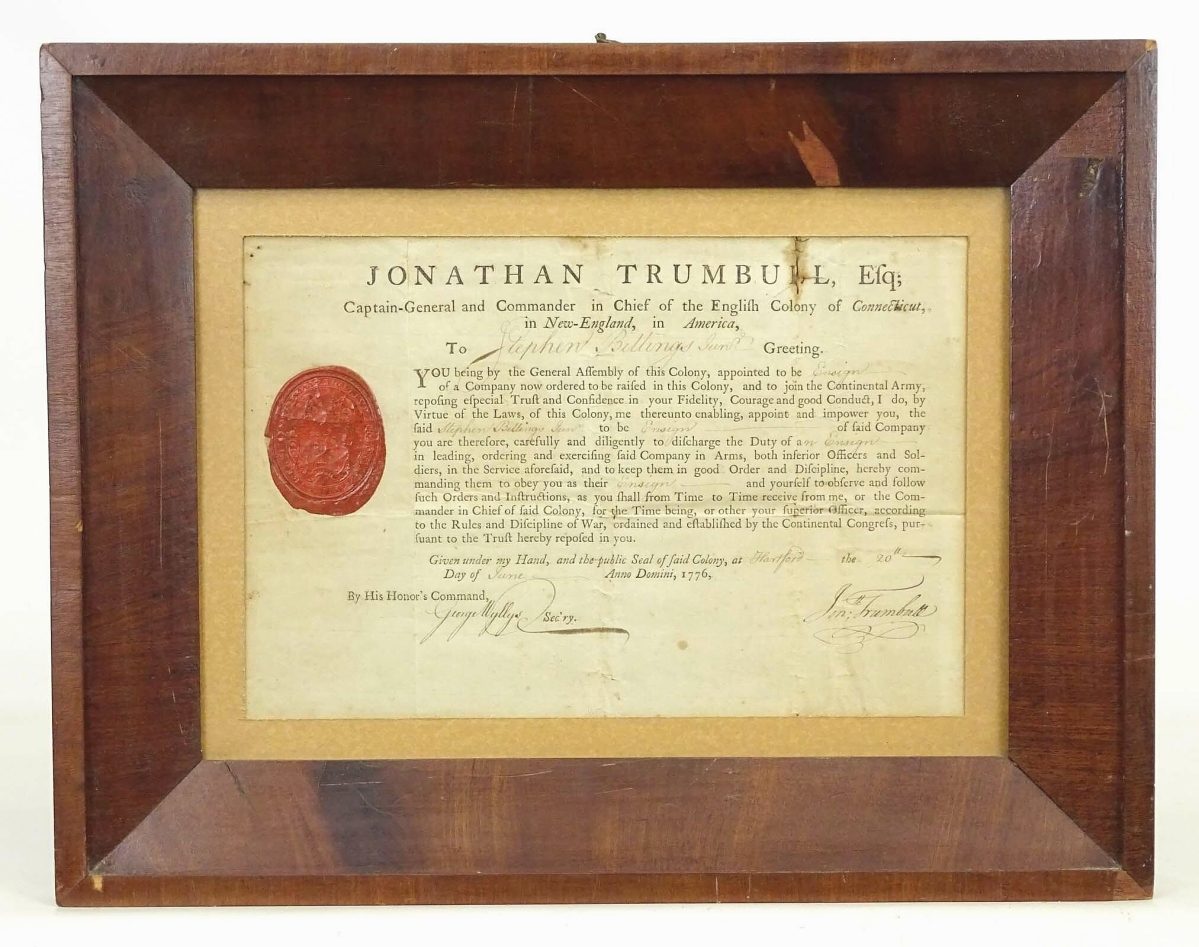 JONATHAN TRUMBULL, Eſq;
Captain-General and Commander in Chief of the Engliſh Colony of Connecticut,
in New-England, in America,
To Stephen Billings Junr Greeting.
YOU being by the General Aſſembly of this Colony, appointed to be Ensign
of a Company now ordered to be raiſed in this Colony, and to join the Continental Army,
repoſing eſpecial Truſt and Confidence in your Fidelity, Courage and good Conduct, I do, by
Virtue of the Laws, of this Colony, me thereunto enabling, appoint and impower you, the
ſaid Stephen Billings Junr to be Ensign of said Company
you are therefore, carefully and diligently to diſcharge the Duty of an Ensign
in leading, ordering and exerciſing ſaid Company in Arms, both inferior Officers and Sol-
diers, in the Service aforeſaid, and to keep them in good Order and Diſcipline, hereby com-
manding them to obey you as their Ensign and yourſelf to obſerve and follow
ſuch Orders and Inſtructions, as you ſhall from Time to Time receive from me, or the Com-
mander in Chief of ſaid Colony, for the Time being, or other your ſuperior Officer, according
to the Rules and Diſcipline of War, ordained and eſtabliſhed by the Continental Congreſs, pur-
ſuant to the Truſt hereby repoſed in you.
Given under my Hand, and the public Seal of ſaid Colony, at Hartford the 20th
Day of June Anno Domini, 1776,
By His Honor's Command,
George Wyllys Sec'ry.
Jonth Trumbull